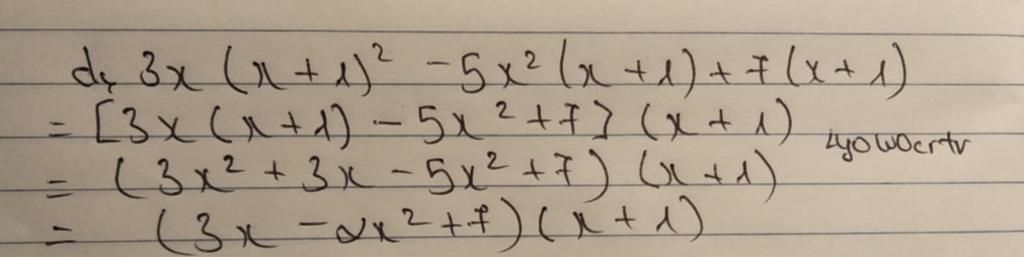 d, 3x (x + 1)² - 5x² (x + 1) + 7 (x + 1)
= [3x (x + 1) - 5x² + 7] (x + 1)
= (3x² + 3x - 5x² + 7) (x + 1)
= (3x - 2x² + 7) (x + 1)